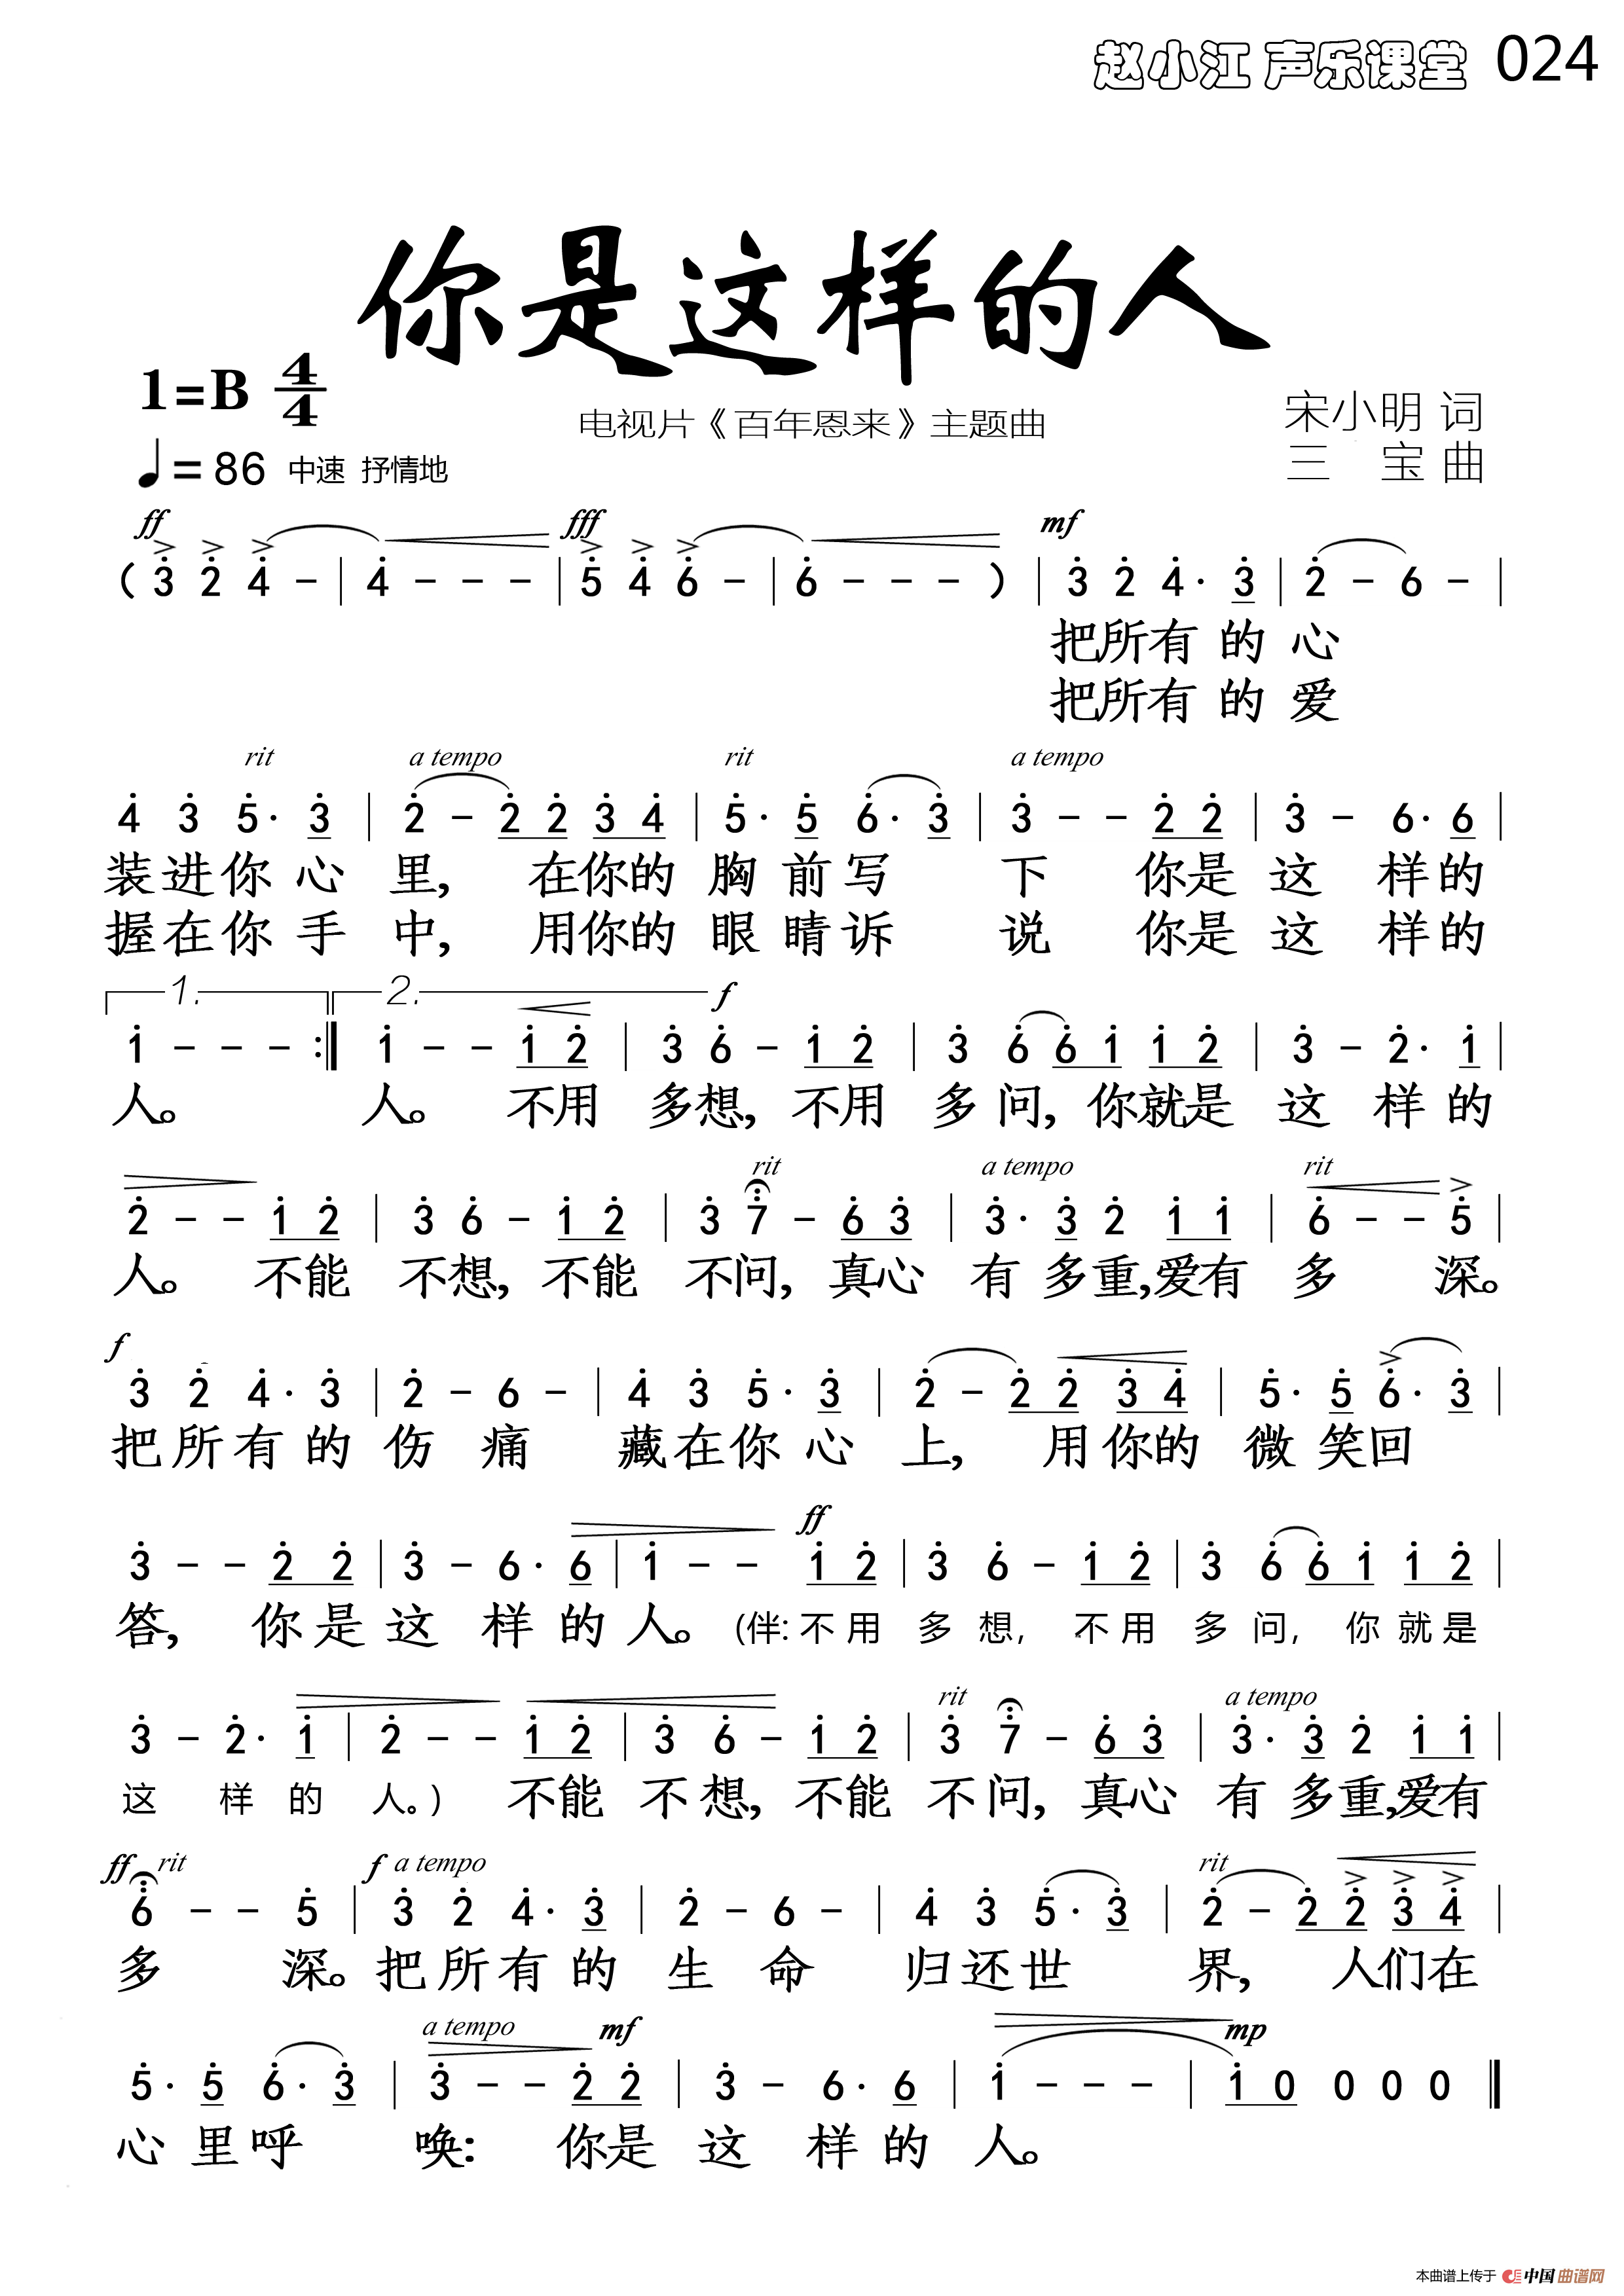 赵小江 声乐课堂 024
你是这样的人
1=B 4/4
电视片《百年恩来》主题曲
宋小明 词
♩= 86 中速 抒情地
三 宝 曲
ff fff mf
( 3 2 4 - | 4 - - - | 5 4 6 - | 6 - - - ) | 3 2 4· 3 | 2 - 6 - |
把所有 的 心
把所有 的 爱
rit a tempo rit a tempo
4 3 5· 3 | 2 - 2 2 3 4 | 5· 5 6· 3 | 3 - - 2 2 | 3 - 6· 6 |
装进你 心 里, 在你的 胸 前 写 下 你是 这 样的
握在你 手 中, 用你的 眼 睛 诉 说 你是 这 样的
1. 2. f
1 - - - :‖ 1 - - 1 2 | 3 6 - 1 2 | 3 6 6 1 1 2 | 3 - 2· 1 |
人。 人。 不用 多想, 不用 多 问, 你就是 这 样 的
rit a tempo rit
2 - - 1 2 | 3 6 - 1 2 | 3 7 - 6 3 | 3· 3 2 1 1 | 6 - - 5 |
人。 不能 不想, 不能 不问, 真心 有 多重,爱有 多 深。
f
3 2 4· 3 | 2 - 6 - | 4 3 5· 3 | 2 - 2 2 3 4 | 5· 5 6· 3 |
把 所 有 的 伤 痛 藏在你 心 上, 用 你的 微 笑回
ff
3 - - 2 2 | 3 - 6· 6 | 1 - - 1 2 | 3 6 - 1 2 | 3 6 6 1 1 2 |
答, 你 是 这 样 的 人。 (伴: 不 用 多 想, 不 用 多 问, 你 就 是
rit a tempo
3 - 2· 1 | 2 - - 1 2 | 3 6 - 1 2 | 3 7 - 6 3 | 3· 3 2 1 1 |
这 样 的 人。) 不能 不 想, 不能 不 问, 真心 有 多重,爱有
ff rit f a tempo rit
6 - - 5 | 3 2 4· 3 | 2 - 6 - | 4 3 5· 3 | 2 - 2 2 3 4 |
多 深。 把 所 有 的 生 命 归 还 世 界, 人们在
a tempo mf mp
5· 5 6· 3 | 3 - - 2 2 | 3 - 6· 6 | 1 - - - | 1 0 0 0 0 ‖
心 里 呼 唤: 你是 这 样 的 人。
本曲谱上传于 中国曲谱网